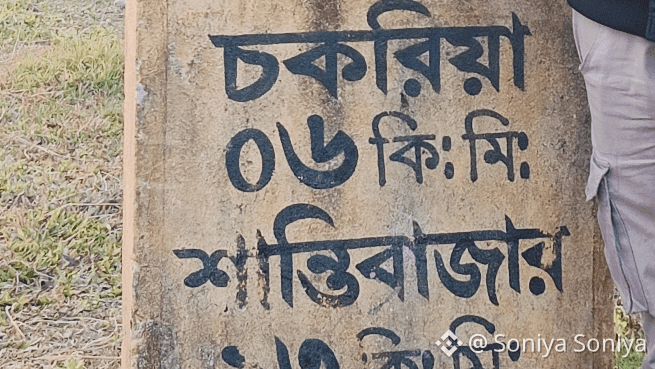 চকরিয়া
০৬ কি: মি:
শান্তিবাজার
কি: মি:
@Soniya Soniya